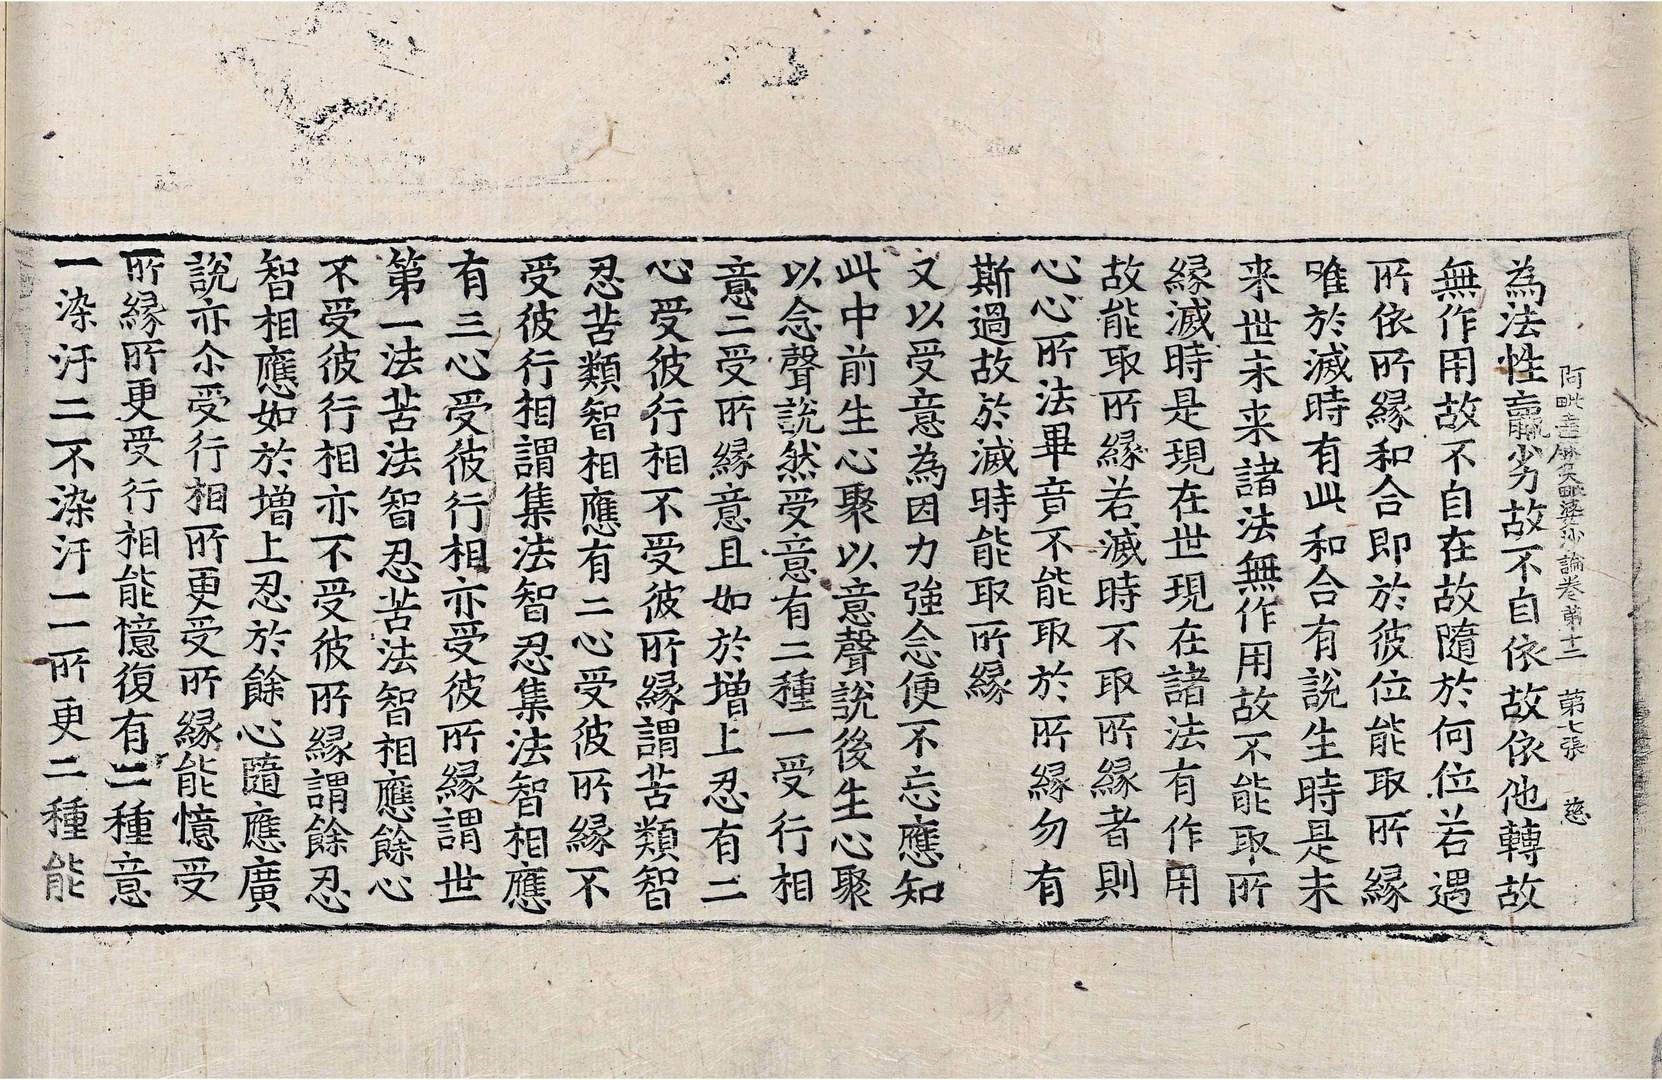 阿毗達磨大毗婆沙論卷第十二　第七張　慈
為法性羸劣故不自依故依他轉故
無作用故不自在故隨於何位若遇
所依所緣和合即於彼位能取所緣
唯於滅時有此和合有說生時是未
来世未来諸法無作用故不能取所
緣滅時是現在世現在諸法有作用
故能取所緣若滅時不取所緣者則
心心所法畢竟不能取於所緣勿有
斯過故於滅時能取所緣
又以受意為因力強念便不忘應知
此中前生心聚以意聲說後生心聚
以念聲說然受意有二種一受行相
意二受所緣意且如於增上忍有二
心受彼行相不受彼所緣謂苦類智
忍苦類智相應有二心受彼所緣不
受彼行相謂集法智忍集法智相應
有三心受彼行相亦受彼所緣謂世
第一法苦法智忍苦法智相應餘心
不受彼行相亦不受彼所緣謂餘忍
智相應如於增上忍於餘心隨應廣
說亦尒受行相所更受所緣能憶受
所緣所更受行相能憶復有二種意
一染汙二不染汙一一所更二種能